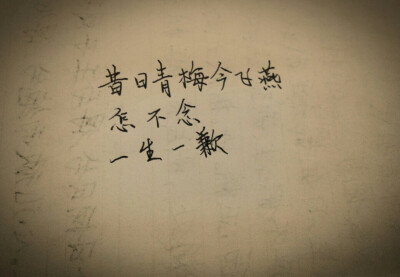 昔日青梅今飞燕
怎不念
一生一歉